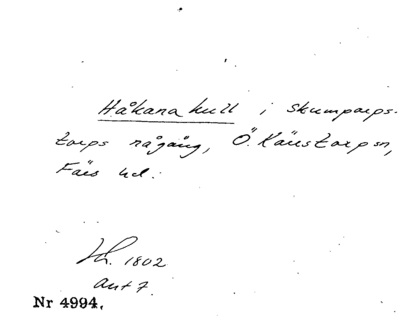 Håkana kull i Skumparps-
torps rågång, Ö. Kärstorp sn,
Färs hd.
Lh. 1802
ant 7.
Nr 4994.